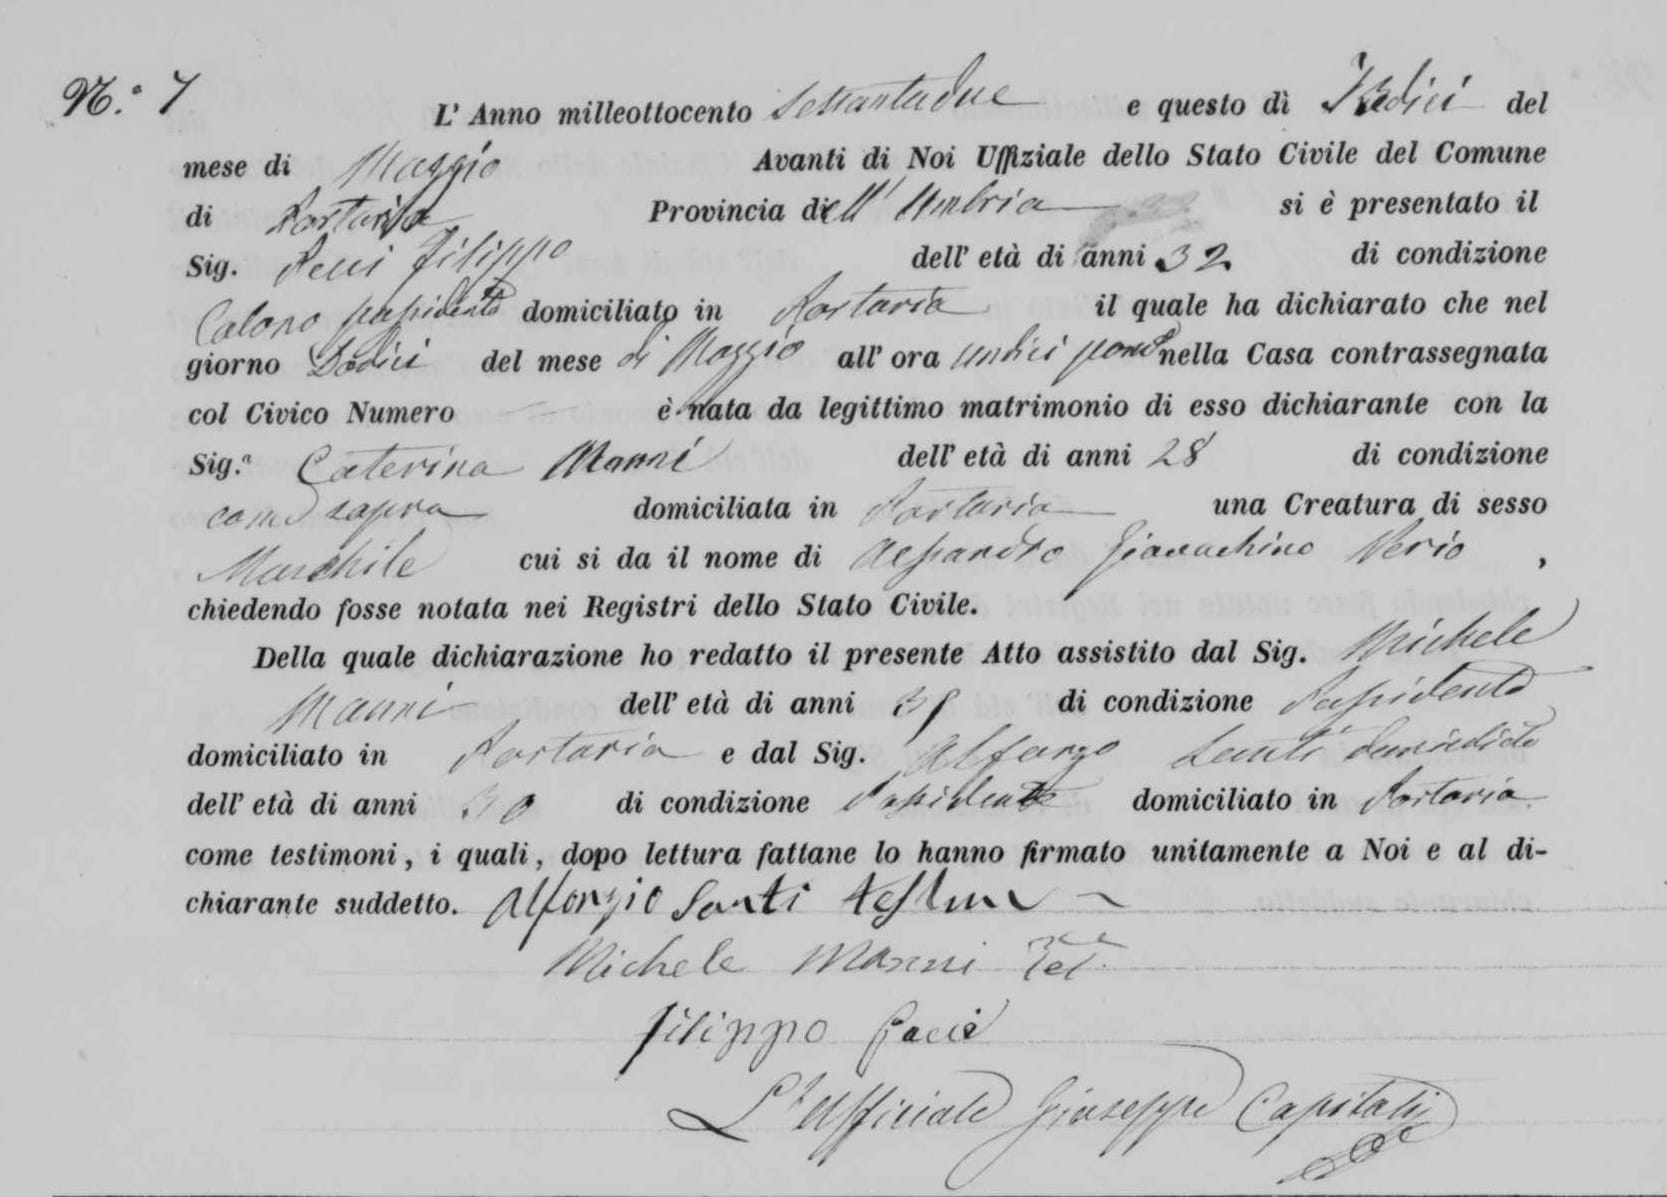 N.° 7
L' Anno milleottocento Settantadue e questo dì Tredici del
mese di Maggio Avanti di Noi Uffiziale dello Stato Civile del Comune
di Portaria Provincia dell' Umbria si è presentato il
Sig. Pecci Filippo dell' età di anni 32 di condizione
Colono possidente domiciliato in Portaria il quale ha dichiarato che nel
giorno Dodici del mese di Maggio all' ora undici pom. nella Casa contrassegnata
col Civico Numero è nata da legittimo matrimonio di esso dichiarante con la
Sig.ª Caterina Manni dell' età di anni 28 di condizione
come sopra domiciliata in Portaria una Creatura di sesso
Maschile cui si da il nome di Alessandro Giovachino Nerio ,
chiedendo fosse notata nei Registri dello Stato Civile.
Della quale dichiarazione ho redatto il presente Atto assistito dal Sig. Michele
Manni dell' età di anni di condizione Possidente
domiciliato in Portaria e dal Sig. Alfonzo Santi
dell' età di anni 30 di condizione Possidente domiciliato in Portaria
come testimoni, i quali, dopo lettura fattane lo hanno firmato unitamente a Noi e al di-
chiarante suddetto. Alfonzio Santi
Michele Manni
Filippo Pacci
L'Ufficiale Giuseppe Capitali